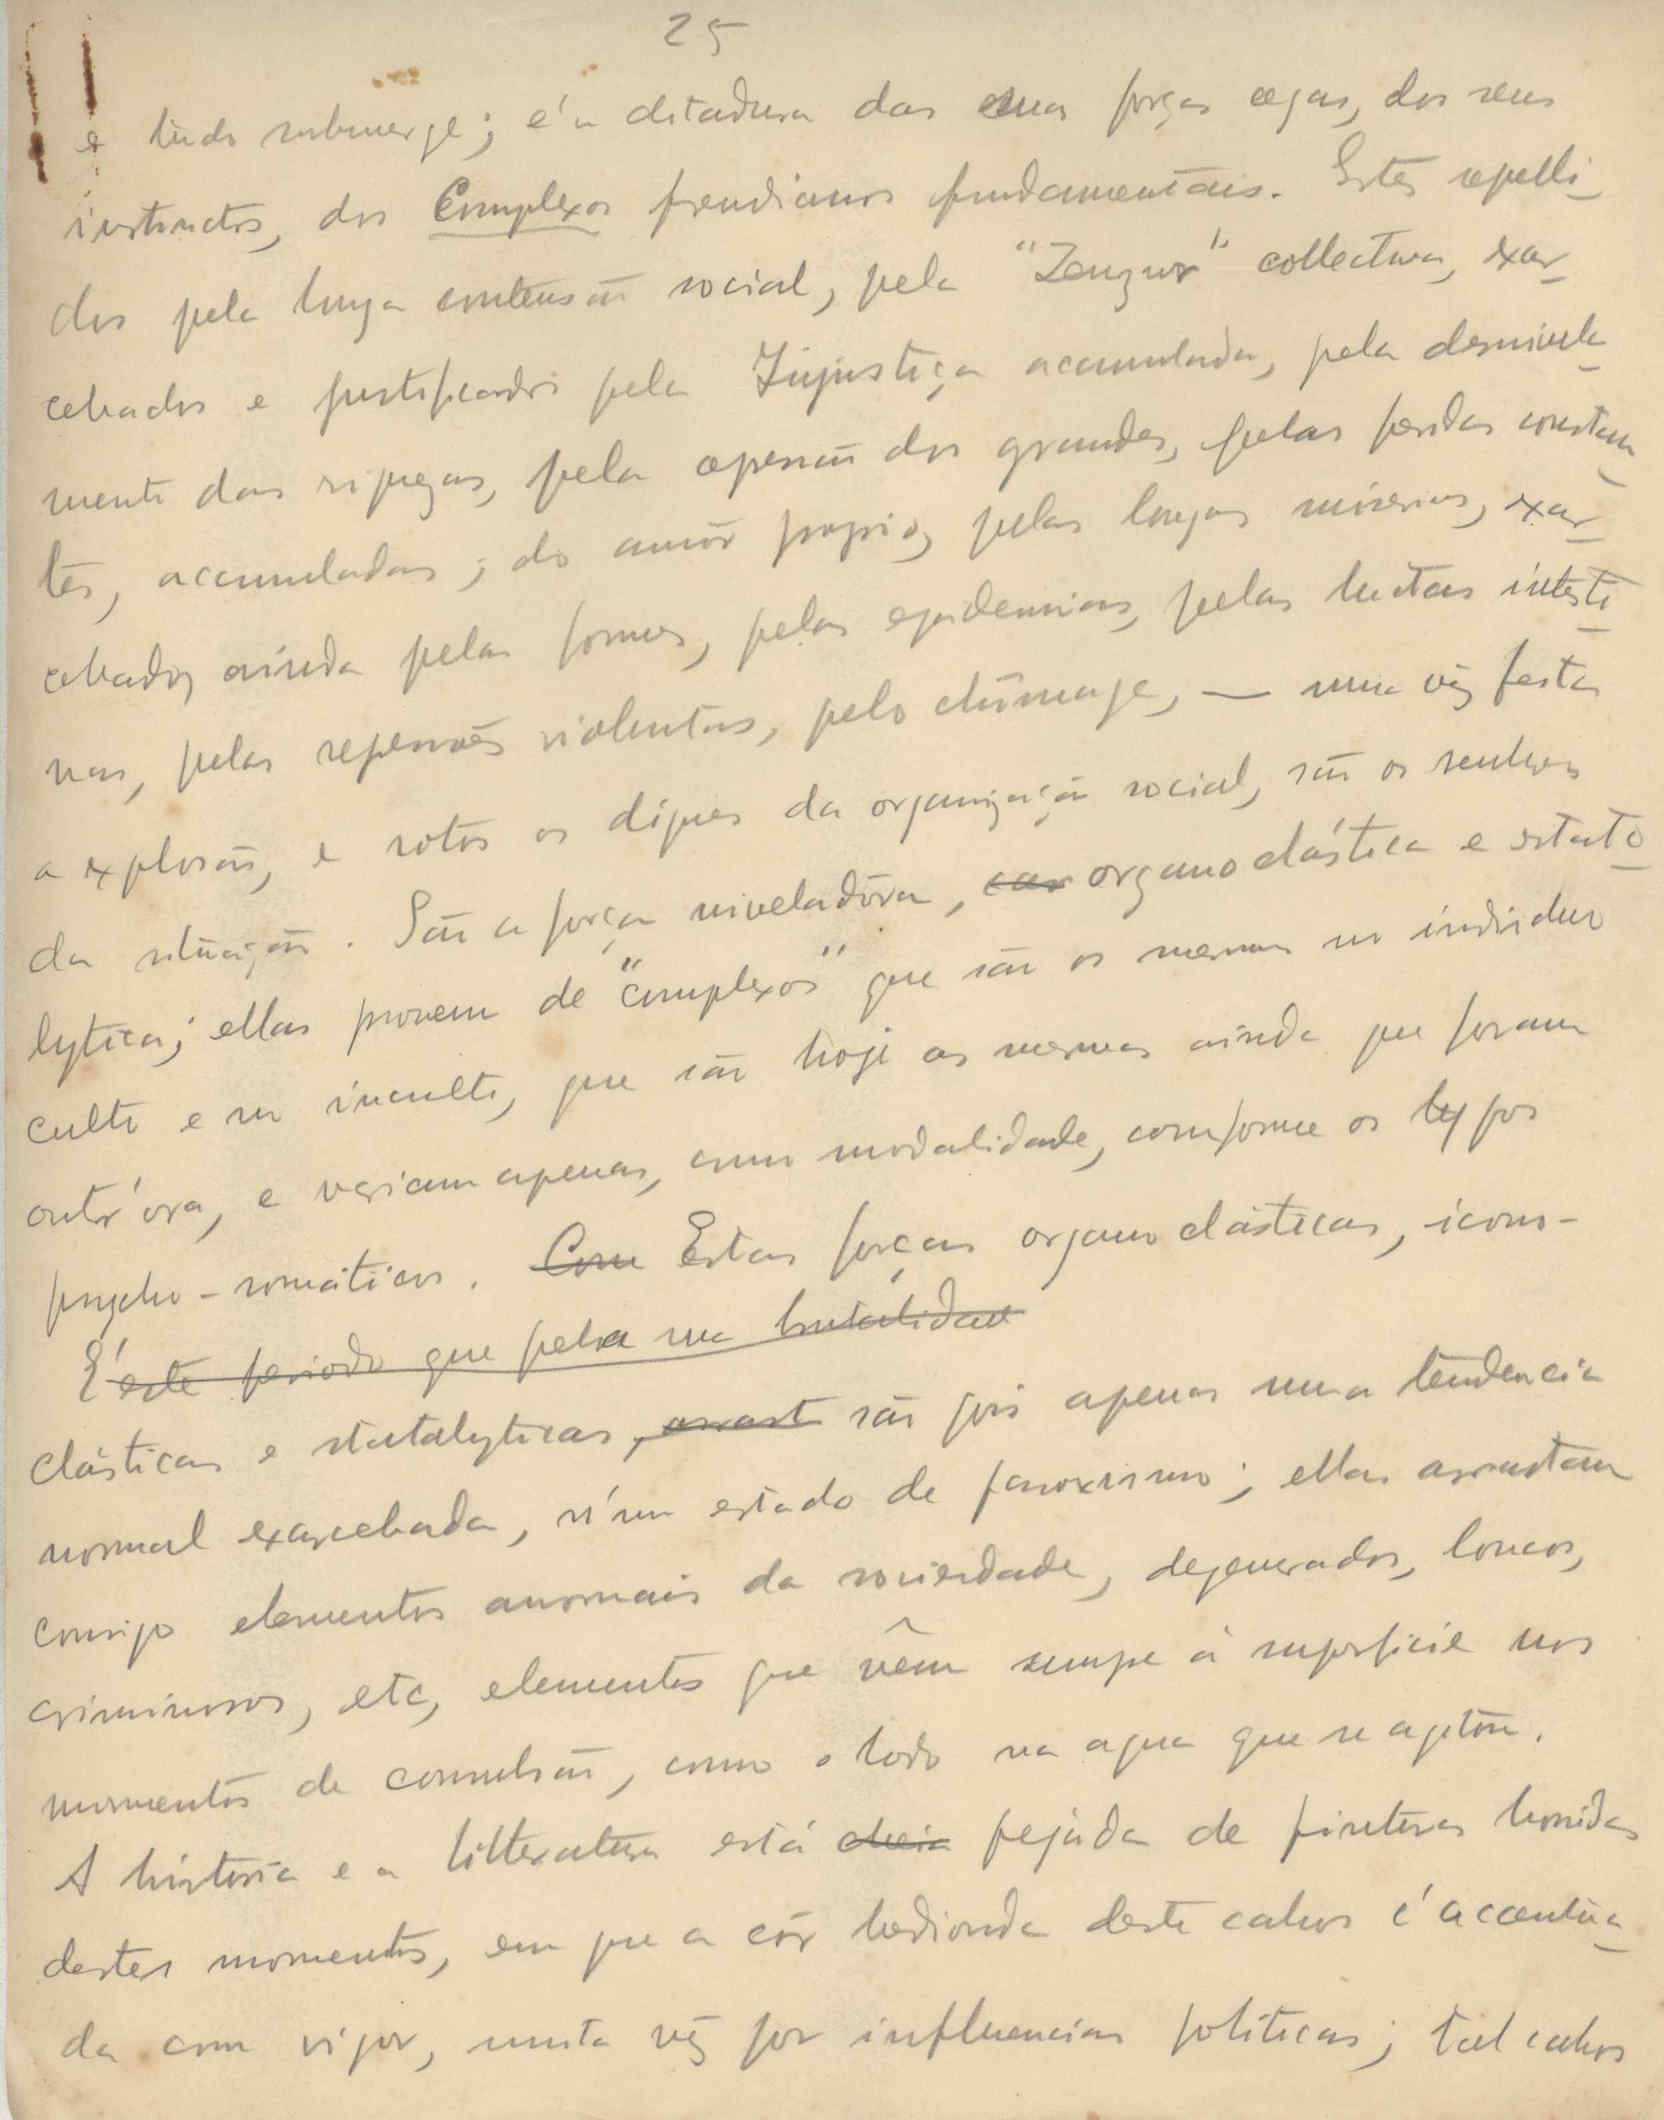 25
e tudo submerge; é a ditadura das suas forças cegas, dos seus
instinctos, dos Complexos freudianos fundamentais. Estes repelli-
dos pela longa contensão social, pela "Zenzur" collectiva, exar-
cebados e justificados pela Injustiça accumulada, pela desnivela-
mento das riquezas, pela opressão dos grandes, pelas perdas constan-
tes, accumuladas; do amôr proprio, pelas longas miserias, exar-
cebados ainda pelas fomes, pelas epidemias, pelas luctas intesti-
nas, pelas repressões violentas, pelo chômage, — uma vêz feita
a explosão, e rotos os diques da organização social, são os senhores
da situação. São a força niveladôra, car organoclástica e estato-
lytica; ellas provem de "complexos" que são os mesmos no individuo
culto e no inculto, que são hoje os mesmos ainda que foram
outr'ora, e variam apenas, como modalidade, conforme os typos
psycho-somáticos. Com Estas forças organoclásticas, icono-
É este periodo que pela sua brutalidade
clásticas e statolyticas, arrast são pois apenas uma tendencia
normal exarcebada, n'um estado de paroxismo; ellas arrastam
comsigo elementos anormais da sociedade, degenerados, loucos,
criminosos, etc, elementos que vêm sempre á superficie nos
momentos de convulsão, como o lodo na agua que se agitou.
A história e a litteratura está cheia pejáda de pinturas horridas
destes momentos, em que a côr hedionda deste cahos é accentua-
da com vigor, muita vêz por influencias politicas; tal cahos